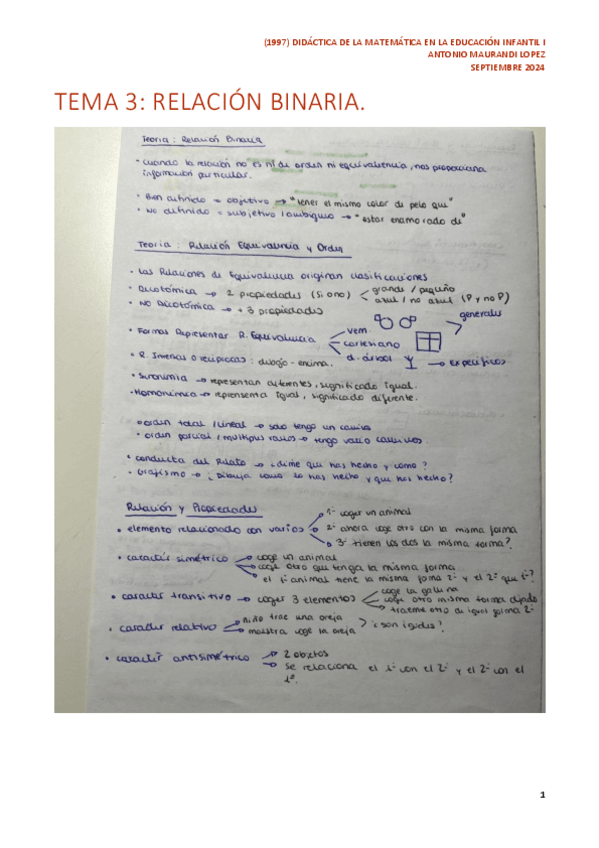 (1997) DIDÁCTICA DE LA MATEMÁTICA EN LA EDUCACIÓN INFANTIL I
ANTONIO MAURANDI LOPEZ
SEPTIEMBRE 2024
TEMA 3: RELACIÓN BINARIA.
Teoria: Relación Binaria
· Cuando la relación no es ni de orden ni equivalencia, nos proporciona
información particular.
· Bien definido = objetivo → "tener el mismo color de pelo que"
· No definido = subjetivo / ambiguo → "estar enamorado de"
Teoria: Relación Equivalencia y Orden
· Las Relaciones de Equivalencia originan clasificaciones
· Dicotómica → 2 propiedades (Si o no) grande / pequeño
azul / no azul (P y no P)
· No Dicotómica → + 3 propiedades
generales
· Formas Representar R. Equivalencia
venn
cartesiano
d. árbol → específicos
· R. Inversas o recíprocas: debajo - encima.
· Sinonimia → representan diferentes, significado igual.
· Homonimia → representa igual, significado diferente.
· orden total / lineal → solo tengo un camino
· orden parcial / múltiples → tengo varios caminos.
· conducta del Relato → ¿dime que has hecho y como?
· Grafismo → ¿Dibuja como lo has hecho y que has hecho?
Relación y Propiedades
· elemento relacionado con varios
1º coger un animal
2º ahora coge otro con la misma forma
3º tienen los dos la misma forma?
· caracter simétrico
coge un animal
coge otro que tenga la misma forma
el 1º animal tiene la misma forma 2º y el 2º que 1º?
· caracter transitivo → coger 3 elementos
coge la gallina
coge otro misma forma
traeme otro de igual forma 2º
· caracter relativo
niño trae una oreja
maestra coge la oreja
¿son iguales?
· caracter antisimétrico
2 objetos
se relaciona el 1º con el 2º y el 2º con el
1º.
1